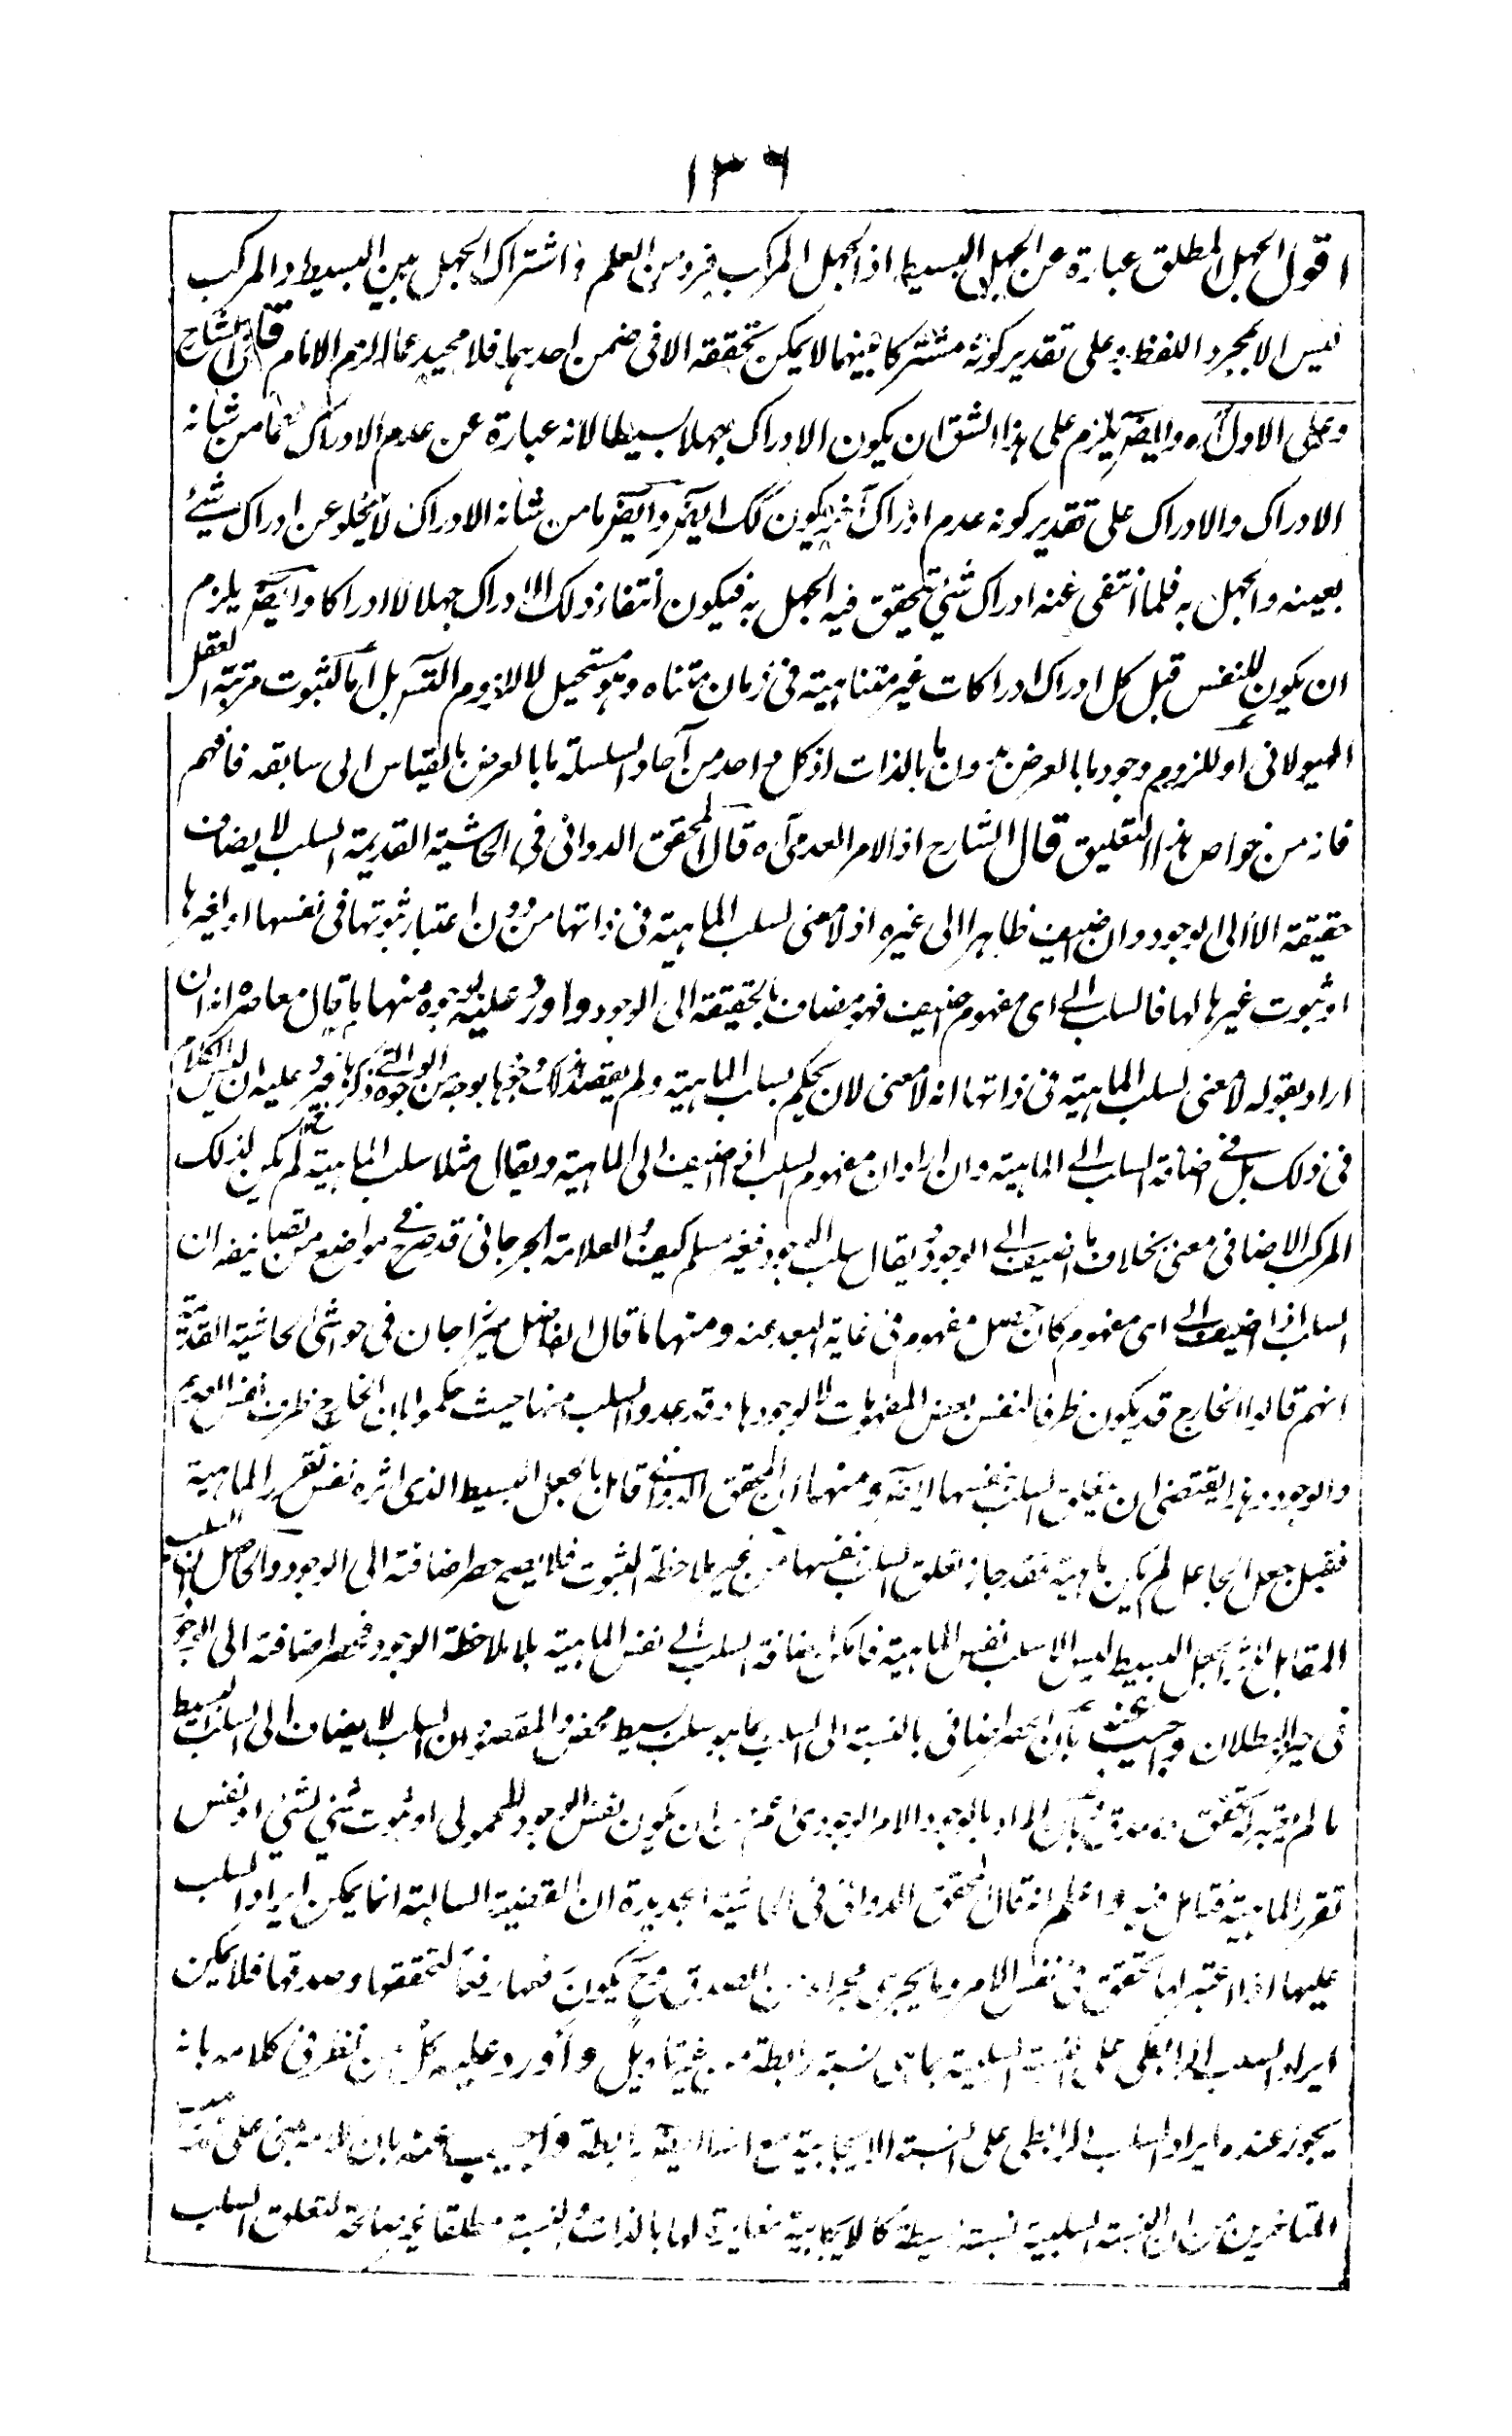 ١٣٦
اقول الجهل المطلق عبارة عن الجهل البسيط اذ الجهل المركب فرد من العلم و اشتراك الجهل بين البسيط والمركب
ليس الا بمجرد اللفظ وعلى تقدير كونه مشتركا بينهما لا يمكن تحققه الا فى ضمن احدهما فلا محيد عما الزم الامام قال الشارح
وعلى الاول آه وايضر يلزم على هذا الشق ان يكون الادراك جهلا بسيطا لانه عبارة عن عدم الادراك عما من شانه
الادراك والادراك على تقدير كونه عدم ادراك آخر يكون كك ايضر وايضر ما من شانه الادراك لا يخلو عن ادراك شيئ
بعينه والجهل به فلما انتفى عنه ادراك شئي تحقق فيه الجهل به فيكون انتفاء ذلك الادراك جهلا لا ادراكا وايضر يلزم
ان يكون للنفس قبل كل ادراك ادراكات غير متناهية فى زمان متناه وهو مستحيل لا للزوم التسـ بل اما لثبوت مرتبة العقل
الهيولانى او للزوم وجود ما بالعرض بدون ما بالذات اذ كل واحد من آحاد السلسلة ما بالعرض بالقياس الى سابقه فافهم
فانه من خواص هذا التعليق قال الشارح اذ الامر العدمى آه قال المحقق الدوانى فى الحاشية القديمة السلب لا يضاف
حقيقة الا الى الوجود وان اضيف ظاهرا الى غيره اذ لا معنى لسلب الماهية فى ذاتها من دون اعتبار ثبوتها فى نفسها او لغيرها
او ثبوت غيرها لها فالسلب الى اى مفهوم اضيف فهو مضاف بالحقيقة الى الوجود واورد عليه بوجوه منها ما قال معاصره انه ان
اراد بقوله لا معنى لسلب الماهية فى ذاتها انه لا معنى لان يحكم بسلب الماهية ولم يقصد بوجه من الوجوه التى ذكرها فيرد عليه ان ليس الكلام
فى ذلك بل فى اضافة السلب الى الماهية وان اراد ان مفهوم السلب اذا اضيف الى الماهية ويقال مثلا سلب الماهية لم يكن لذلك
المركب الاضافى معنى بخلاف ما اضيف الى الوجود ويقال سلب الوجود فغير مسلم كيف والعلامة الجرجانى قد صرح فى مواضع من تصانيفه ان
السلب اذا اضيف الى اى مفهوم كان حصل مفهوم فى غاية البعد عنه ومنها ما قال الفاضل ميرزا جان فى حواشى الحاشية القديمة
انهم قالوا الخارج قد يكون ظرفا لنفس بعض المفهومات لا لوجودها وقد عدوا السلب منها حيث حكموا بان الخارج ظرف لنفس العدم
والوجود وهذا يقتضى ان يتعلق السلب بنفسها ايضر ومنها ان المحقق الدوانى قائل بالجعل البسيط الذى اثره نفس تقرر الماهية
فقبل جعل الجاعل لم يكن ماهية فقد جاز تعلق السلب بنفسها من غير ملاحظة الثبوت فلا يصح حصر اضافته الى الوجود والحاصل ان السلب
المقابل لاثر الجعل البسيط ليس الا سلب نفس الماهية فامكن اضافة السلب الى نفس الماهية بلا ملاحظة الوجود فحصر اضافته الى الوجود
فى حيز البطلان واجيب عنه بان الحصر اضافى بالنسبة الى السلب بما هو سلب بسيط محض والمقصود ان السلب لا يضاف الى السلب البسيط
ما لم يعتبر له تحقق بان المراد بالوجود الامر الوجودى اعم من ان يكون نفس الوجود المحمولى او ثبوت شئي لشئي او نفس
تقرر الماهية فتامل فيه واعلم انه قال المحقق الدوانى فى الحاشية الجديدة ان القضية السالبة انما يمكن ايراد السلب
عليها اذا اعتبر لها تحقق فى نفس الامر وما يجرى مجراه من الصدق وح يكون رفعا لتحققها وصدقها فلا يمكن
ايراد السلب الرابطى على النسبة السلبية بما هى نسبة رابطة من غير تاويل واورد عليه كل من نظر فى كلامه بانه
يجوز عنده ايراد السلب الرابطى على النسبة الايجابية مع انها ايضا رابطة واجيب عنه بان كلامه مبنى على مذهب
المتاخرين من ان النسبة السلبية نسبة بسيطة كالايجابية مغايرة لها بالذات والنسبة مطلقا غير صالحة لتعلق السلب